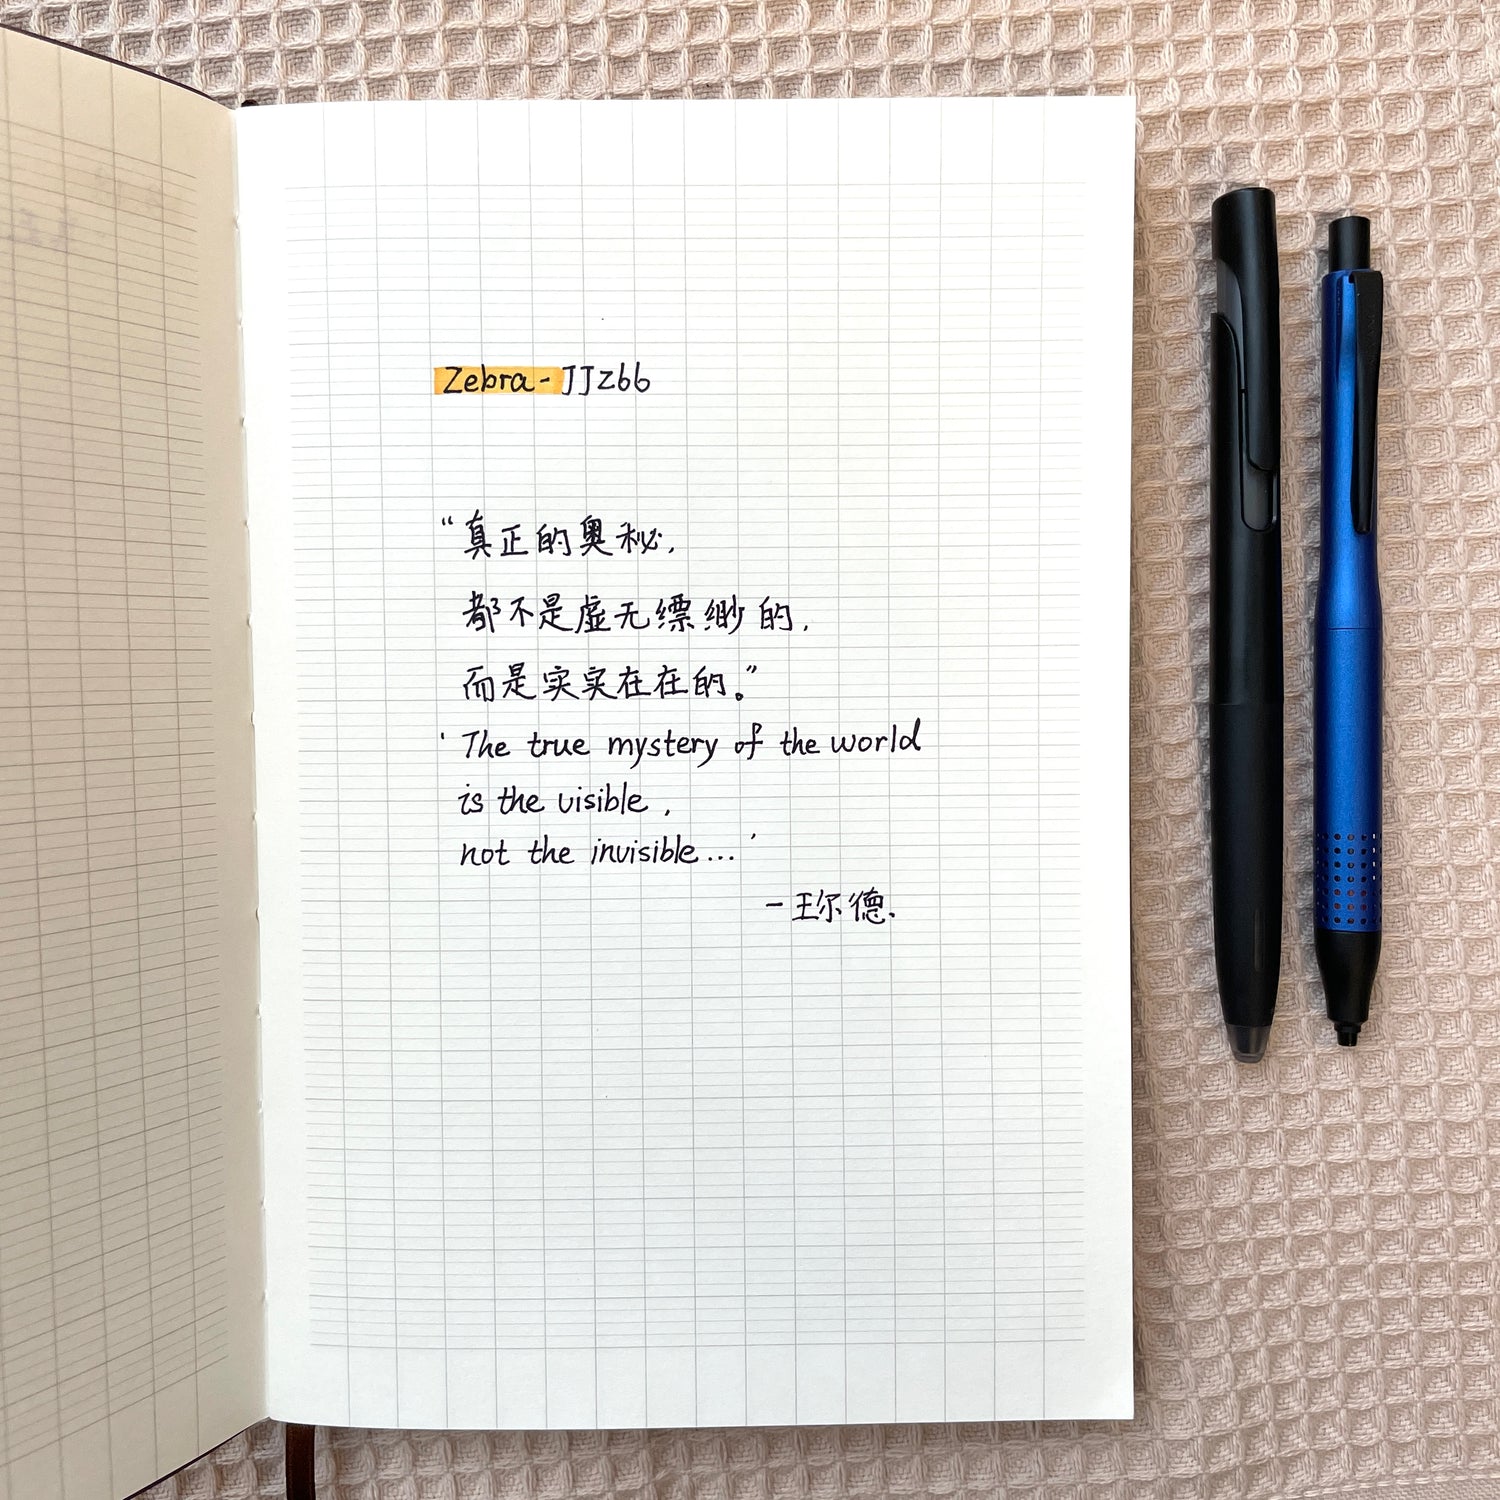 Zebra-JJZ66
“真正的奥秘,
都不是虚无缥缈的,
而是实实在在的。”
'The true mystery of the world
is the visible,
not the invisible...'
-王尔德.